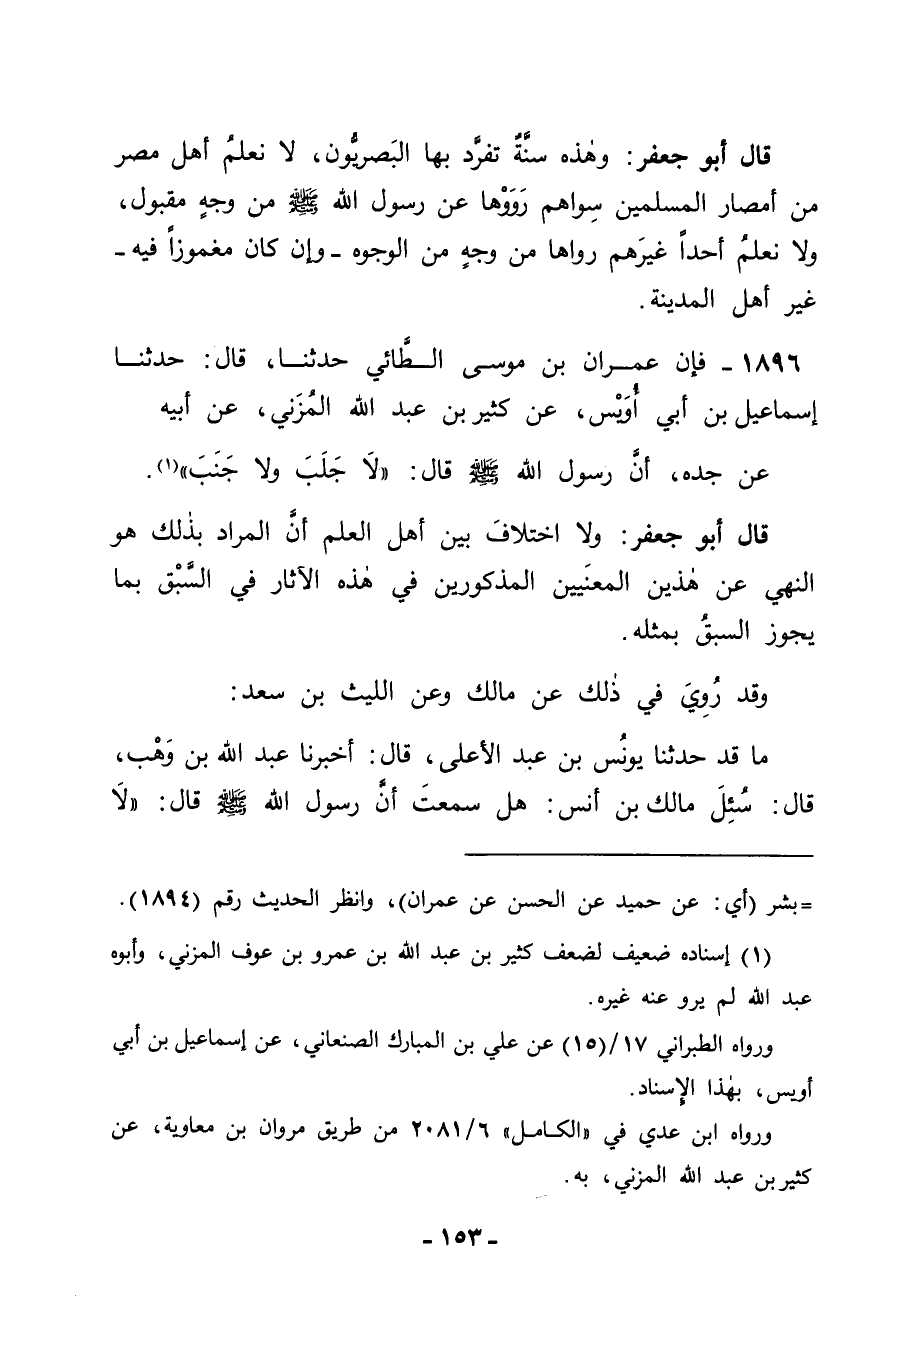 قال أبو جعفر: وهٰذه سنَّةٌ تفرَّد بها البَصريُّون، لا نعلمُ أهل مصر
من أمصار المسلمين سِواهم رَوَوْها عن رسول الله ﷺ من وجهٍ مقبول،
ولا نعلمُ أحداً غيرَهم رواها من وجهٍ من الوجوه ـ وإن كان مغموزاً فيه ـ
غير أهل المدينة.
١٨٩٦ ـ فإن عمـران بن موسـى الـطَّائي حدثنـا، قال: حدثنـا
إسماعيل بن أبي أُوَيْس، عن كثير بن عبد الله المُزَني، عن أبيه
عن جده، أنَّ رسول الله ﷺ قال: «لَا جَلَبَ ولا جَنَبَ»(١).
قال أبو جعفر: ولا اختلافَ بين أهل العلم أنَّ المراد بذٰلك هو
النهي عن هٰذين المعنَيين المذكورين في هٰذه الآثار في السَّبْق بما
يجوز السبقُ بمثله.
وقد رُوِيَ في ذٰلك عن مالك وعن الليث بن سعد:
ما قد حدثنا يونُس بن عبد الأعلى، قال: أخبرنا عبد الله بن وَهْب،
قال: سُئِلَ مالك بن أنس: هل سمعتَ أنَّ رسول الله ﷺ قال: «لَا
=بشر (أي: عن حميد عن الحسن عن عمران)، وانظر الحديث رقم (١٨٩٤).
(١) إسناده ضعيف لضعف كثير بن عبد الله بن عمرو بن عوف المزني، وأبوه
عبد الله لم يرو عنه غيره.
ورواه الطبراني ١٧/(١٥) عن علي بن المبارك الصنعاني، عن إسماعيل بن أبي
أويس، بهٰذا الإسناد.
ورواه ابن عدي في «الكـامـل» ٢٠٨١/٦ من طريق مروان بن معاوية، عن
كثير بن عبد الله المزني، به.
ـ ١٥٣ ـ